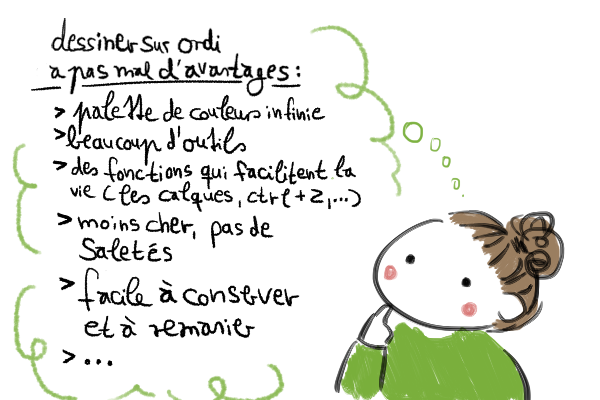 dessiner sur ordi
a pas mal d'avantages :
> palette de couleurs infinie
> beaucoup d'outils
> des fonctions qui facilitent la
vie (les calques, ctrl + Z, ...)
> moins cher, pas de
saletés
> facile à conserver
et à remanier
> ...